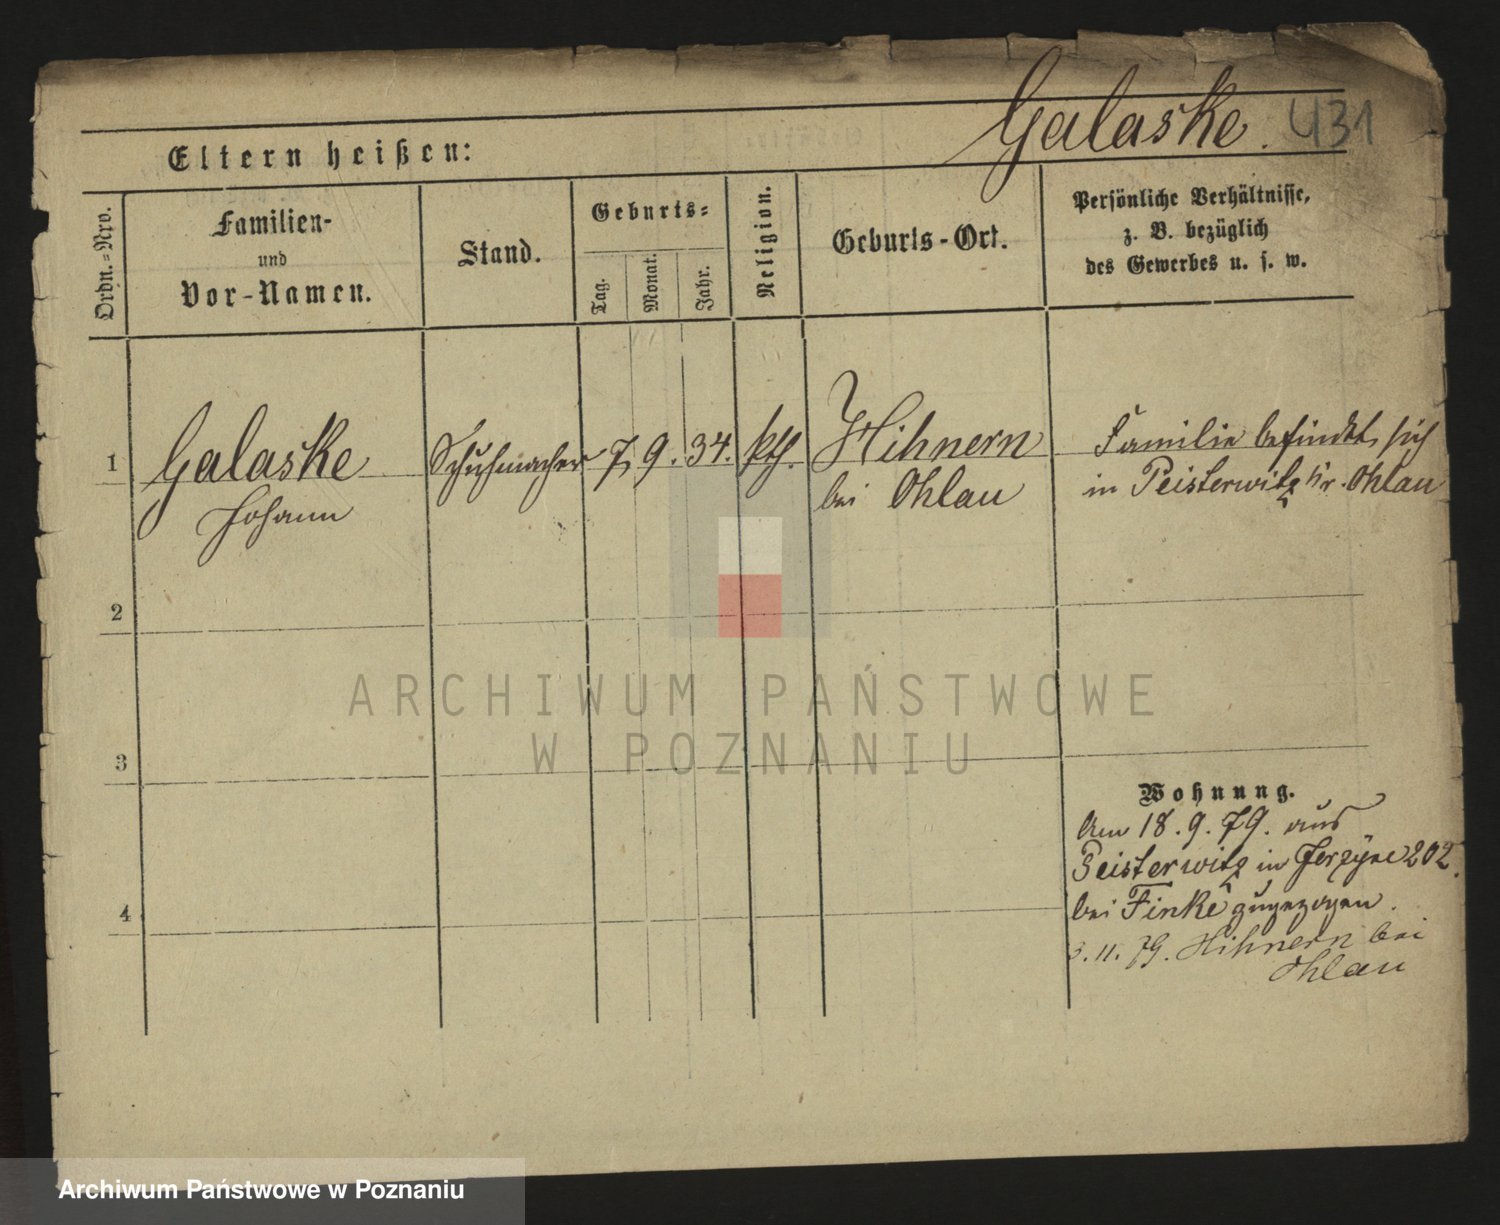 Galaske. 431
Eltern heißen:
Ordn.-Nro.
Familien-
und
Vor-Namen.
Stand.
Geburts-
Tag.
Monat.
Jahr.
Religion.
Geburts-Ort.
Persönliche Verhältnisse,
z. B. bezüglich
des Gewerbes u. s. w.
1 Galaske Schuhmacher 7. 9. 34. kth. Hihnern Familie befindet sich
Johann bei Ohlau in Peisterwitz Kr. Ohlau
2
3
4
Wohnung.
Am 18. 9. 79. aus
Peisterwitz in Jerzyce 202.
bei Finke zugezogen.
3. 11. 79. Hihnern bei
Ohlau
ARCHIWUM PAŃSTWOWE
W POZNANIU
Archiwum Państwowe w Poznaniu